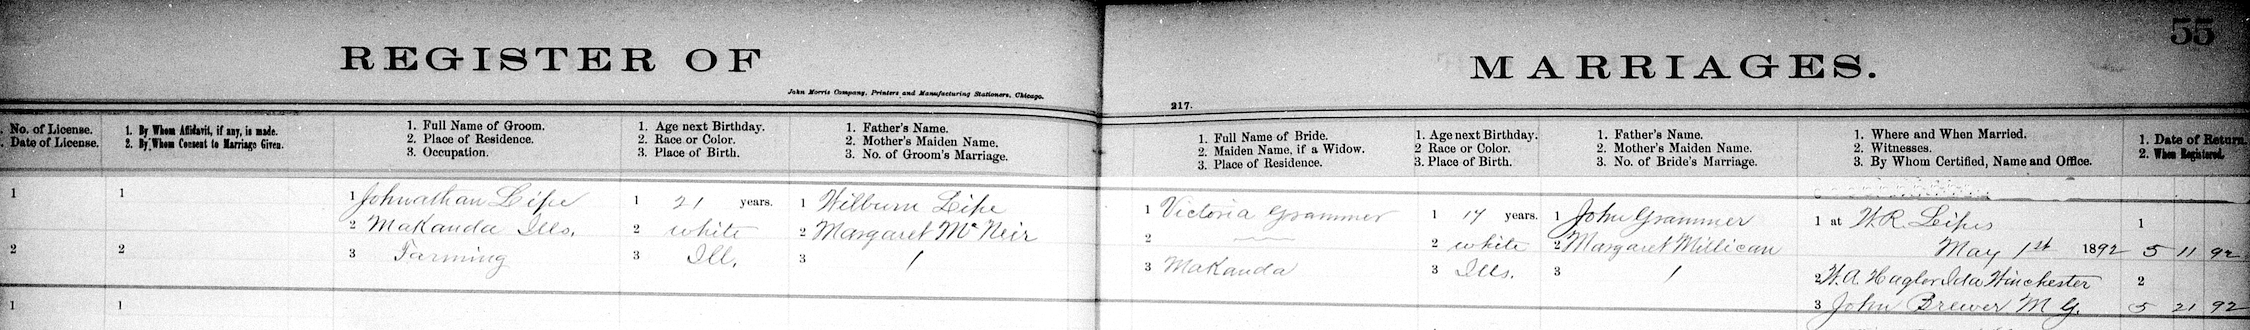 55
REGISTER OF MARRIAGES.
John Morris Company, Printers and Manufacturing Stationers, Chicago.
217.
No. of License.
Date of License.
1. By Whom Affidavit, if any, is made.
2. By Whom Consent to Marriage Given.
1. Full Name of Groom.
2. Place of Residence.
3. Occupation.
1. Age next Birthday.
2. Race or Color.
3. Place of Birth.
1. Father's Name.
2. Mother's Maiden Name.
3. No. of Groom's Marriage.
1. Full Name of Bride.
2. Maiden Name, if a Widow.
3. Place of Residence.
1. Age next Birthday.
2 Race or Color.
3. Place of Birth.
1. Father's Name.
2. Mother's Maiden Name.
3. No. of Bride's Marriage.
1. Where and When Married.
2. Witnesses.
3. By Whom Certified, Name and Office.
1. Date of Return.
2. When Registered.
1
2
1
2
1 Johnathan Lipe
2 Makanda Ills.
3 Farming
1 21 years.
2 white
3 Ill.
1 Wilburn Lipe
2 Margaret McNeir
3 1
1 Victoria Grammer
2
3 Makanda
1 17 years.
2 white
3 Ills.
1 John Grammer
2 Margaret Millican
3 1
1 at W. R. Lipes
May 1st 1892
2 W. A. Hagler Ida Winchester
3 John Brewer M G.
1
5 11 92
2
5 21 92
1
1